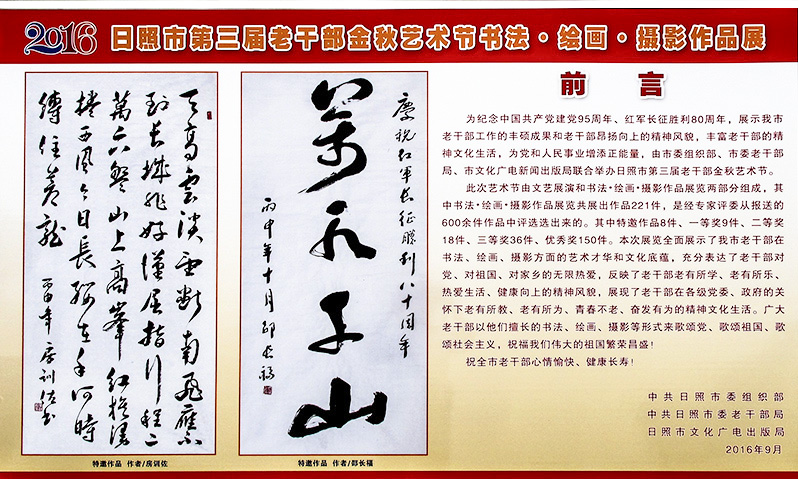 2016日照市第三届老干部金秋艺术节书法·绘画·摄影作品展
天高雲淡望斷南飛雁不
到长城非好漢屈指行程二
萬六盤山上高峯红旗漫
捲西風今日長纓在手何時
縛住蒼龍
房训佐书
特邀作品 作者/房训佐
慶祝红軍长征勝利八十周年
萬水千山
丙申年十月邵长福
特邀作品 作者/邵长福
前 言
为纪念中国共产党建党95周年、红军长征胜利80周年，展示我市
老干部工作的丰硕成果和老干部昂扬向上的精神风貌，丰富老干部的精
神文化生活，为党和人民事业增添正能量，由市委组织部、市委老干部
局、市文化广电新闻出版局联合举办日照市第三届老干部金秋艺术节。
此次艺术节由文艺展演和书法·绘画·摄影作品展览两部分组成，其
中书法·绘画·摄影作品展览共展出作品221件，是经专家评委从报送的
600余件作品中评选选出来的。其中特邀作品8件、一等奖9件、二等奖
18件、三等奖36件、优秀奖150件。本次展览全面展示了我市老干部在
书法、绘画、摄影方面的艺术才华和文化底蕴，充分表达了老干部对
党、对祖国、对家乡的无限热爱，反映了老干部老有所学、老有所乐、
热爱生活、健康向上的精神风貌，展现了老干部在各级党委、政府的关
怀下老有所教、老有所为、青春不老、奋发有为的精神文化生活。广大
老干部以他们擅长的书法、绘画、摄影等形式来歌颂党、歌颂祖国、歌
颂社会主义，祝福我们伟大的祖国繁荣昌盛！
祝全市老干部心情愉快、健康长寿！
中共日照市委组织部
中共日照市委老干部局
日照市文化广电出版局
2016年9月